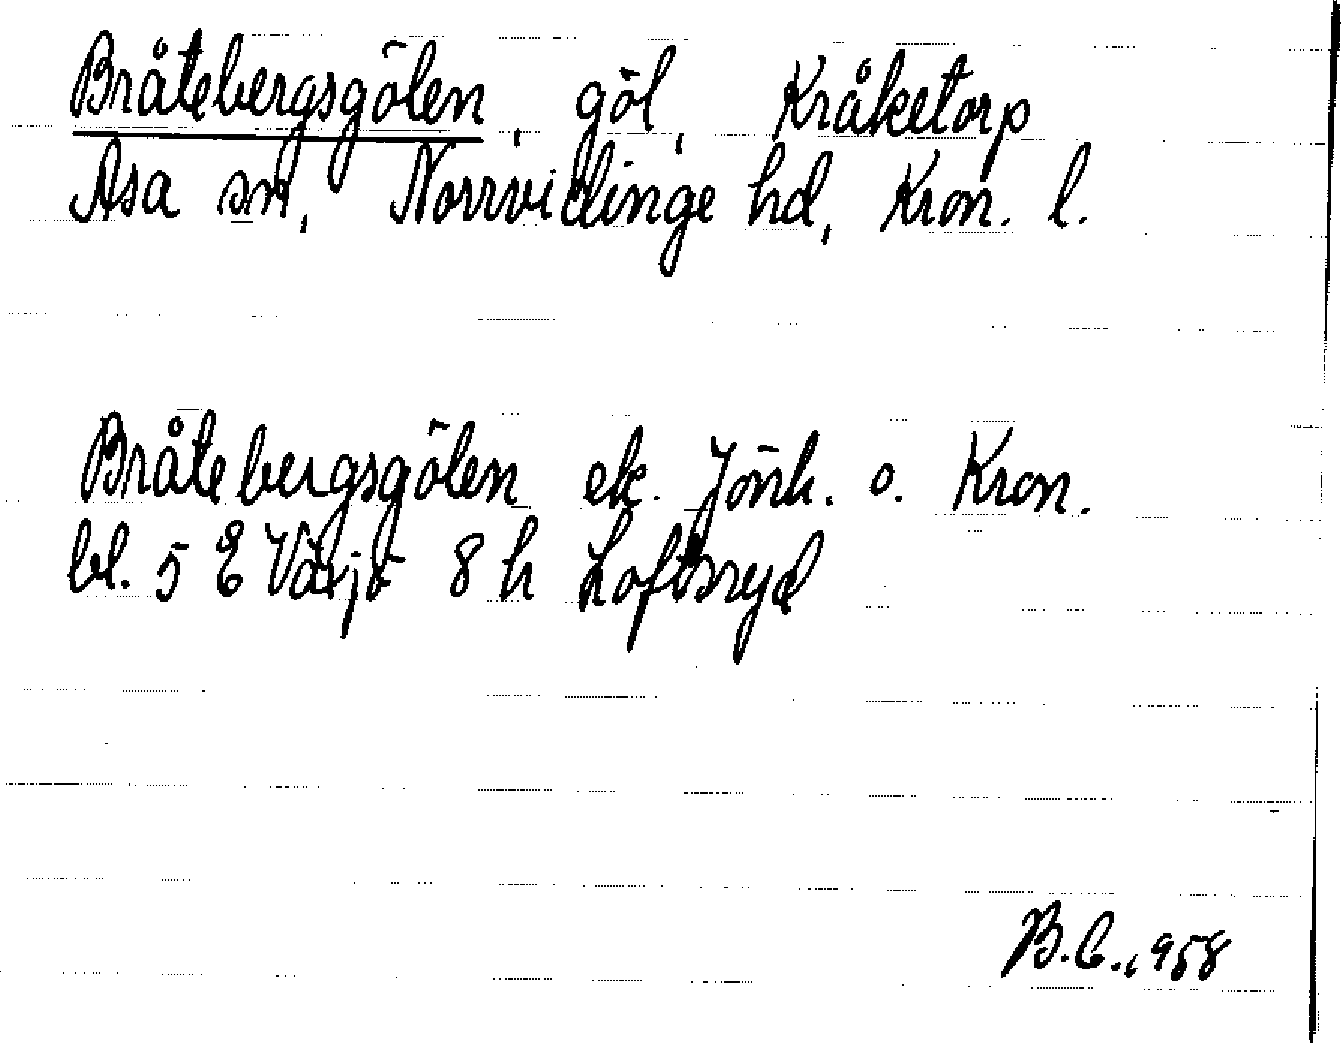 Bråtebergsgölen, göl, Kråketorp
Asa sn, Norrvidinge hd, Kron. l.
Bråtebergsgölen ek. Jönk. o. Kron.
bl. 5 E Växjö 8 h Loftsryd
B.C. 1958